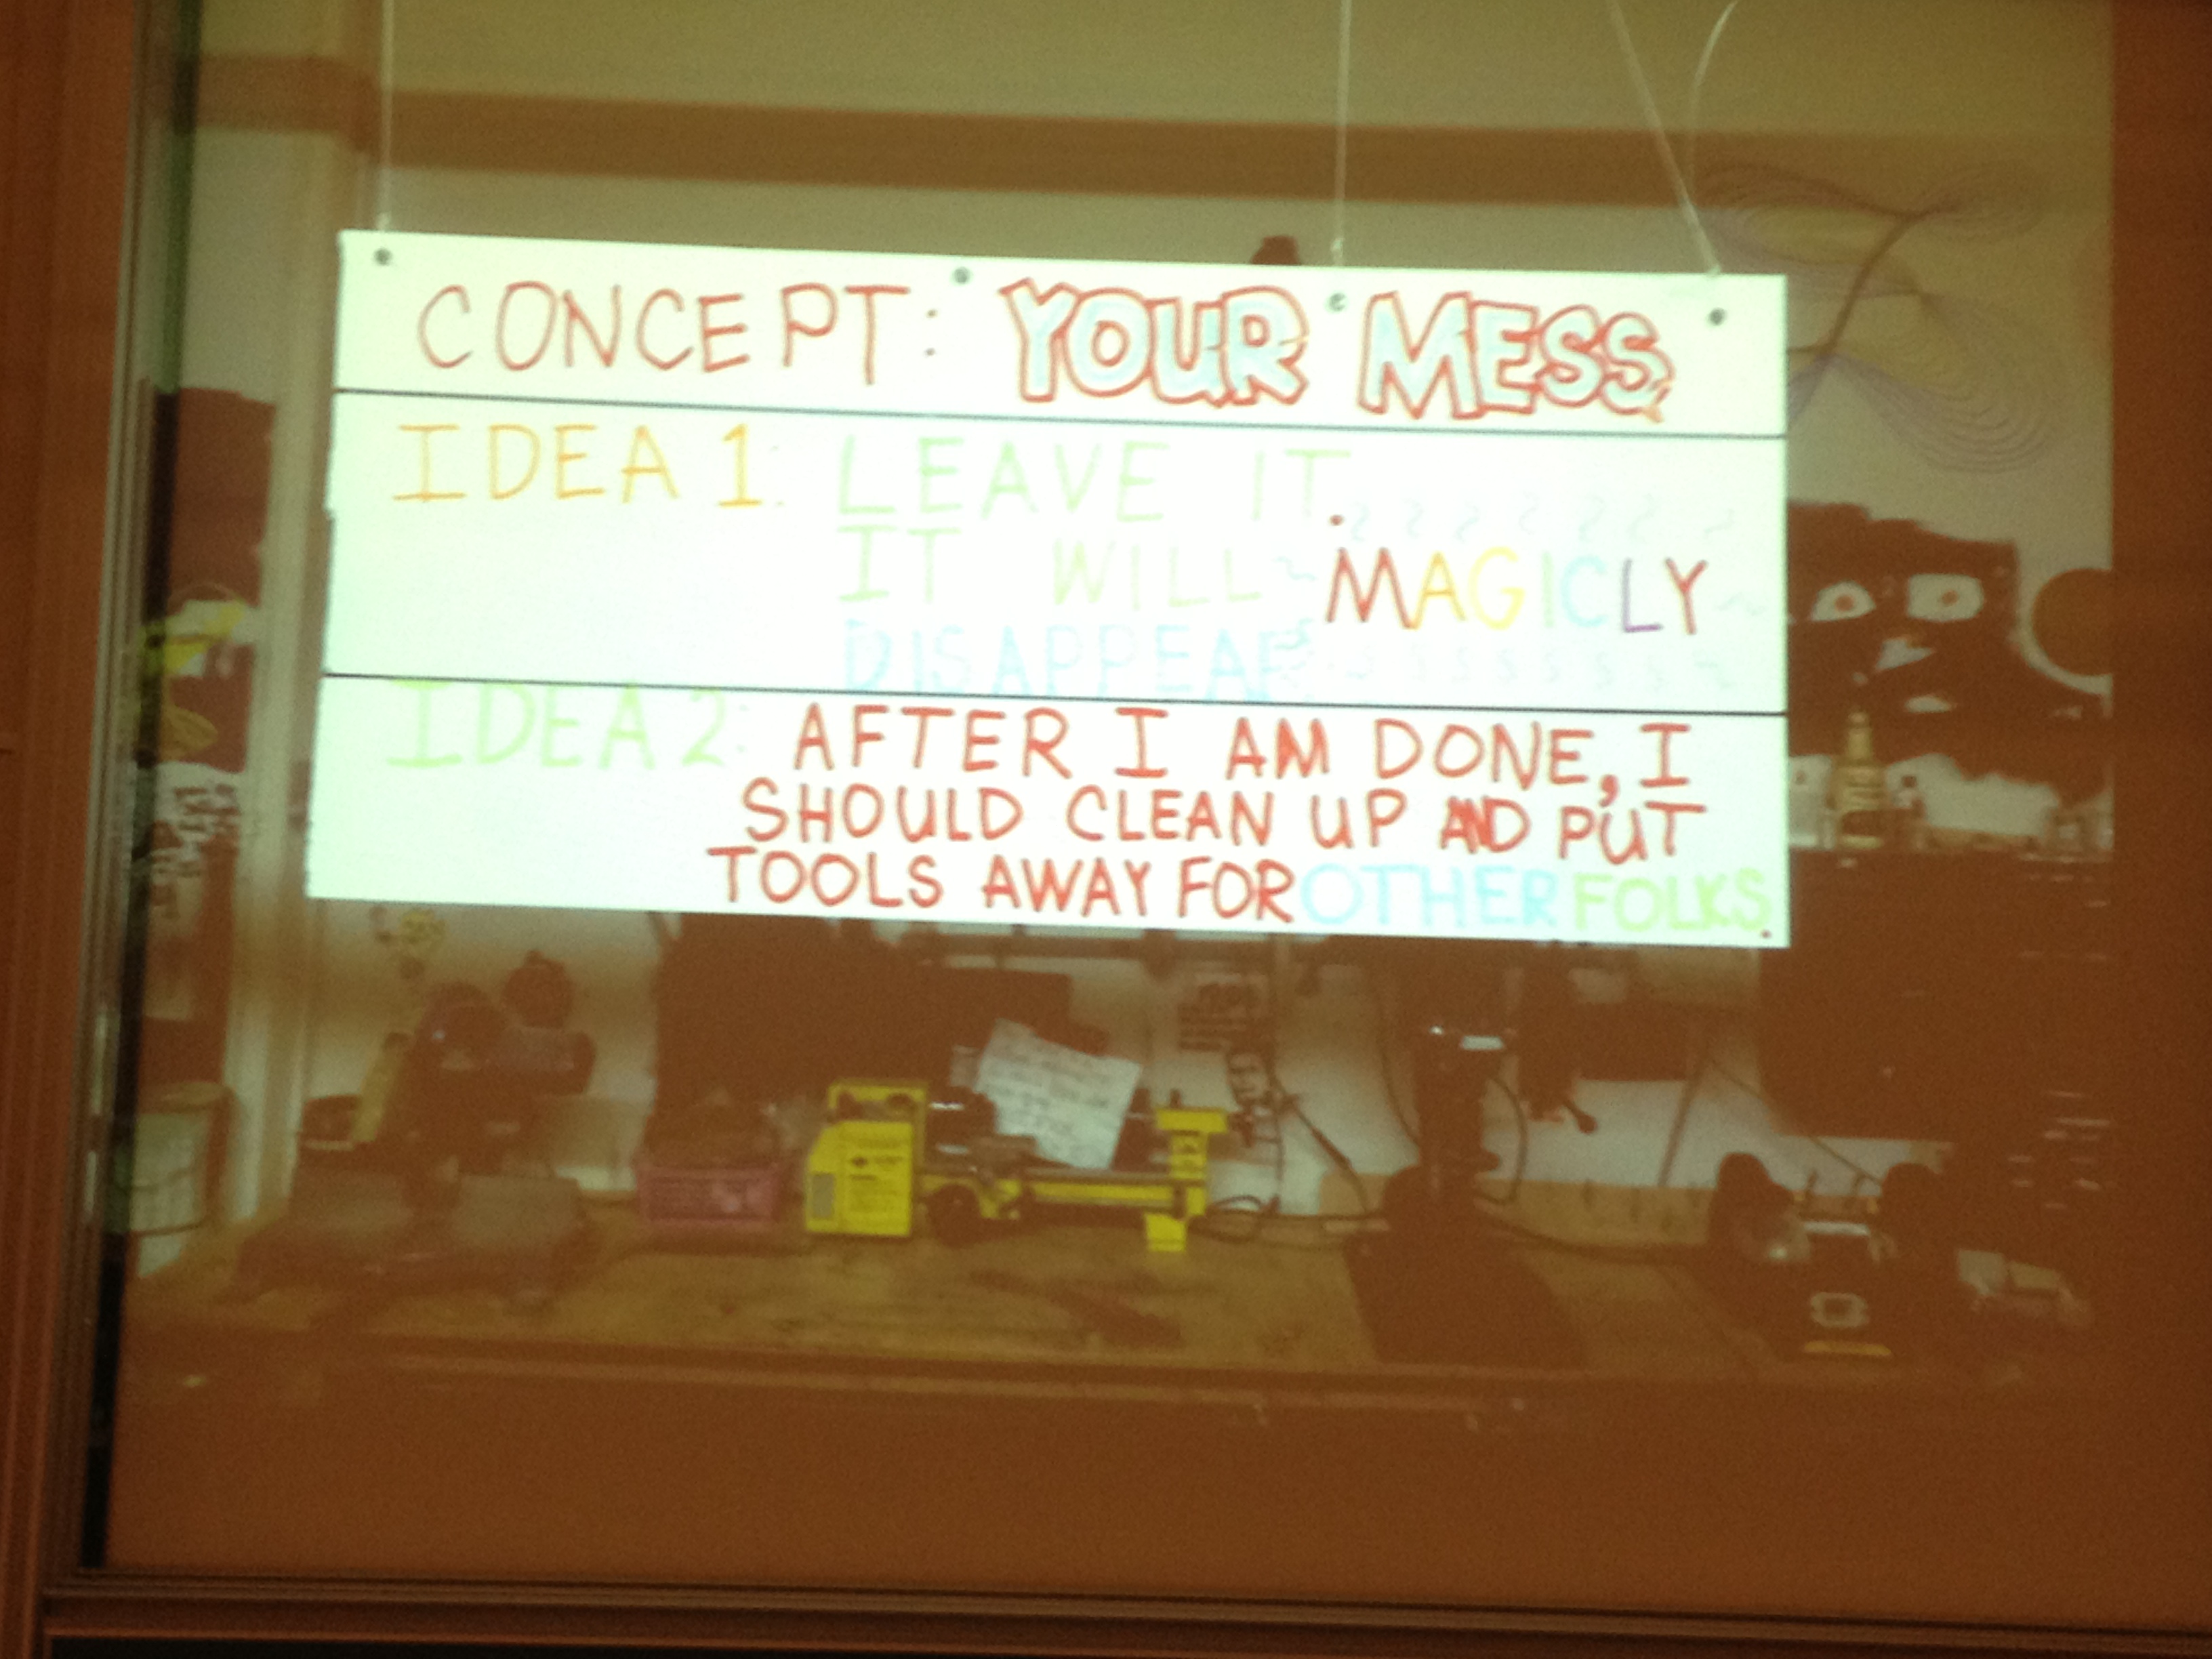 CONCEPT: YOUR MESS
IDEA 1: LEAVE IT.
IT WILL MAGICLY
DISAPPEAR
IDEA 2: AFTER I AM DONE, I
SHOULD CLEAN UP AND PUT
TOOLS AWAY FOR OTHER FOLKS.